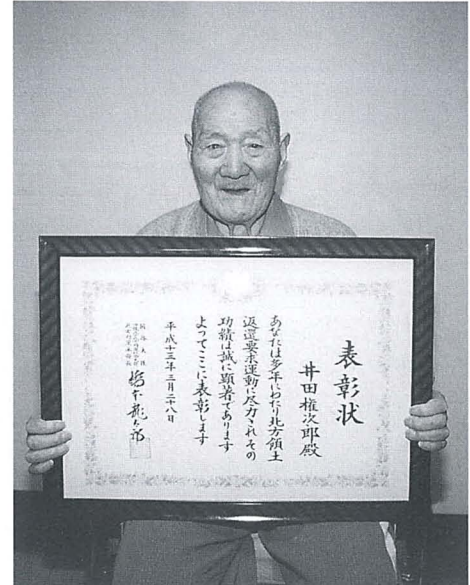 表彰状
井田権次郎殿
あなたは多年にわたり北方領土
返還要求運動に尽力されその
功績は誠に顕著であります
よってここに表彰します
平成十三年三月二十八日
国務大臣
橋本龍太郎